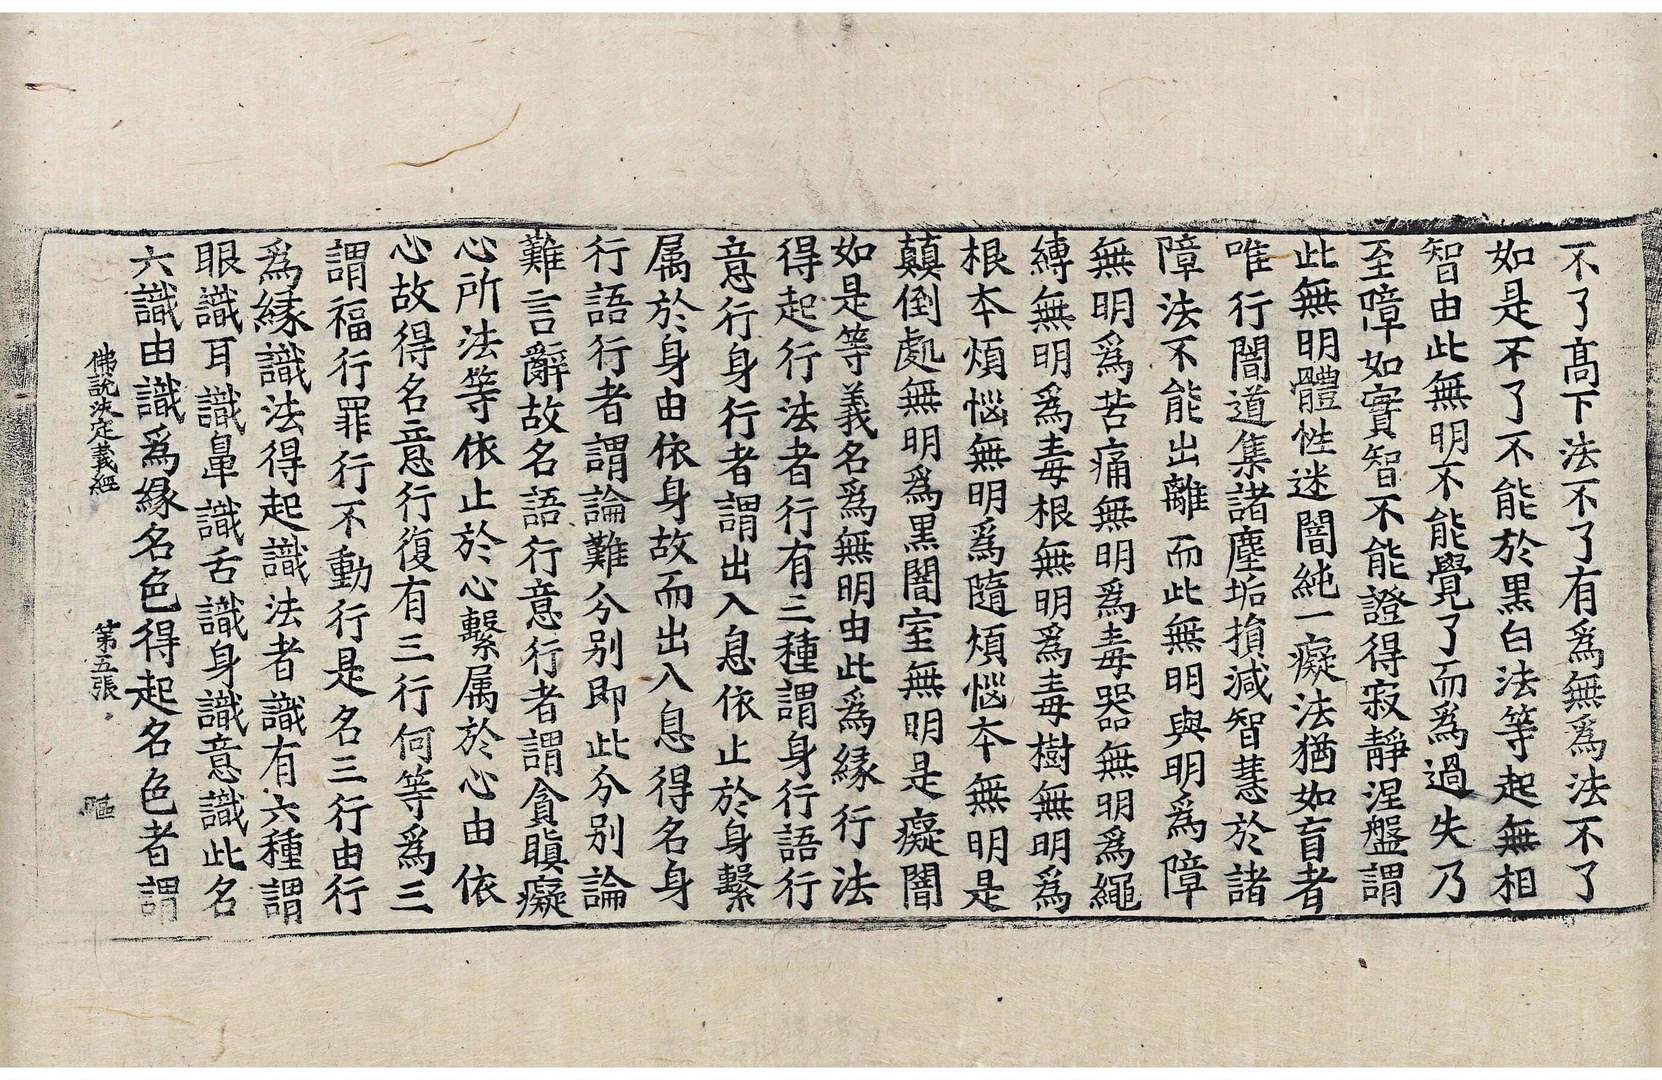 不了髙下法不了有爲無爲法不了
如是不了不能於黑白法等起無相
智由此無明不能覺了而爲過失乃
至障如實智不能證得寂靜涅盤謂
此無明體性迷闇純一癡法猶如盲者
唯行闇道集諸塵垢損減智慧於諸
障法不能出離而此無明與明爲障
無明爲苦痛無明爲毒器無明爲繩
縛無明爲毒根無明爲毒樹無明爲
根本煩惱無明爲隨煩惱本無明是
顛倒處無明爲黑闇室無明是癡闇
如是等義名爲無明由此爲緣行法
得起行法者行有三種謂身行語行
意行身行者謂出入息依止於身繫
属於身由依身故而出入息得名身
行語行者謂論難分別即此分別論
難言辭故名語行意行者謂貪瞋癡
心所法等依止於心繫属於心由依
心故得名意行復有三行何等爲三
謂福行罪行不動行是名三行由行
爲緣識法得起識法者識有六種謂
眼識耳識鼻識舌識身識意識此名
六識由識爲緣名色得起名色者謂
佛說決定義經 第五張